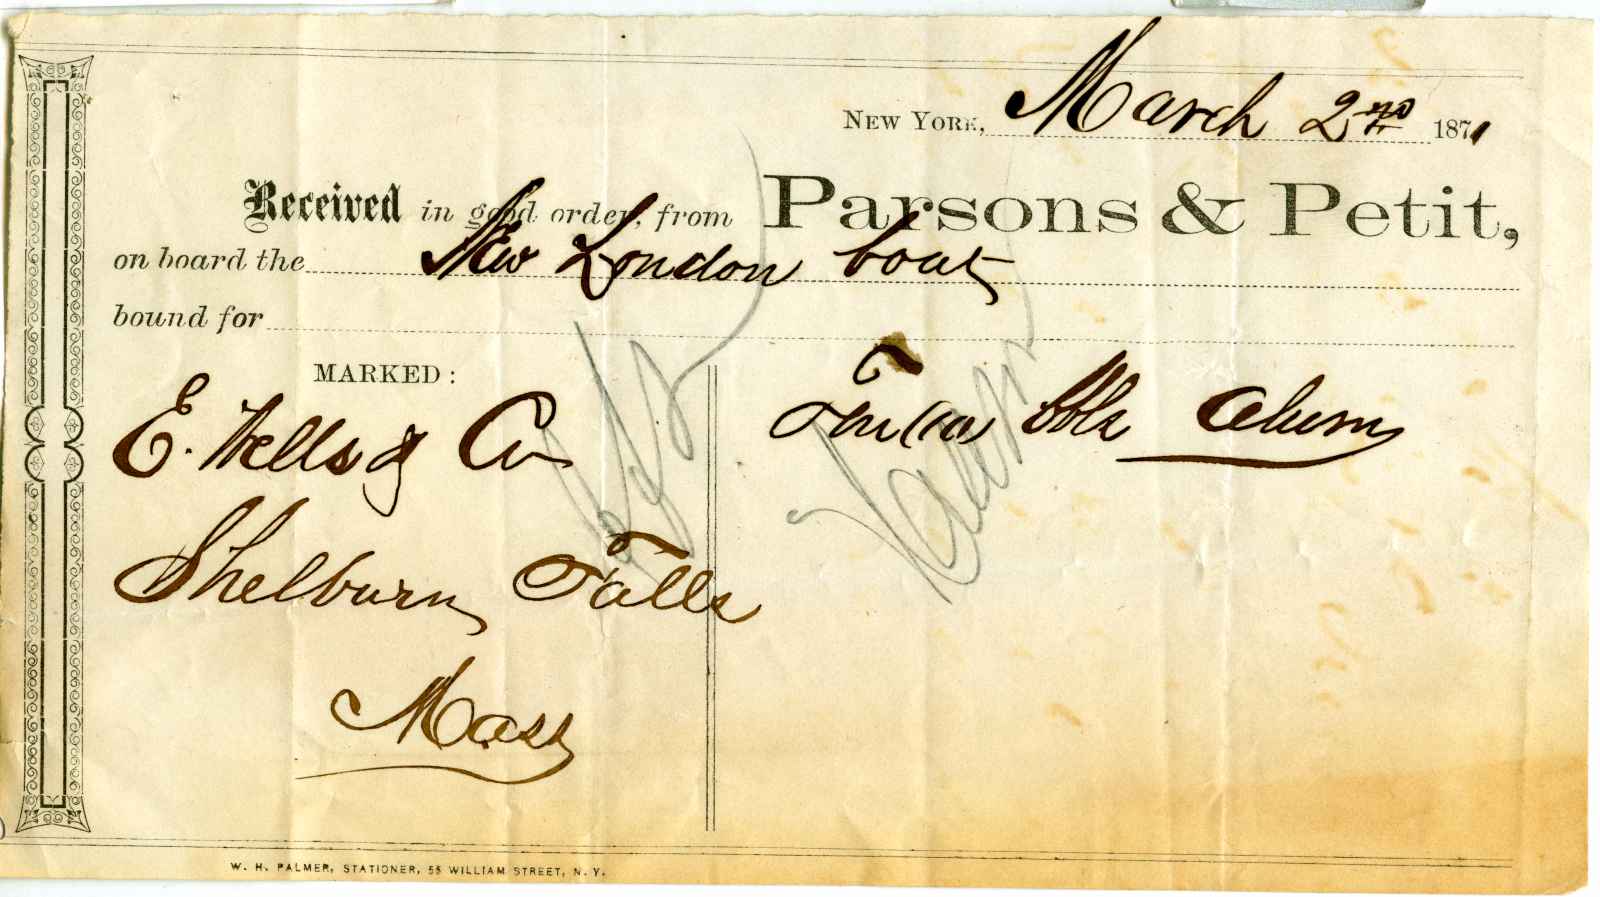 NEW YORK, March 2nd 1871
Received in good order, from Parsons & Petit,
on board the New London boat
bound for
MARKED:
E. Wells & Co
Shelburn Falls
Mass
Ten (10) bbls Alum
W. H. PALMER, STATIONER, 55 WILLIAM STREET, N. Y.